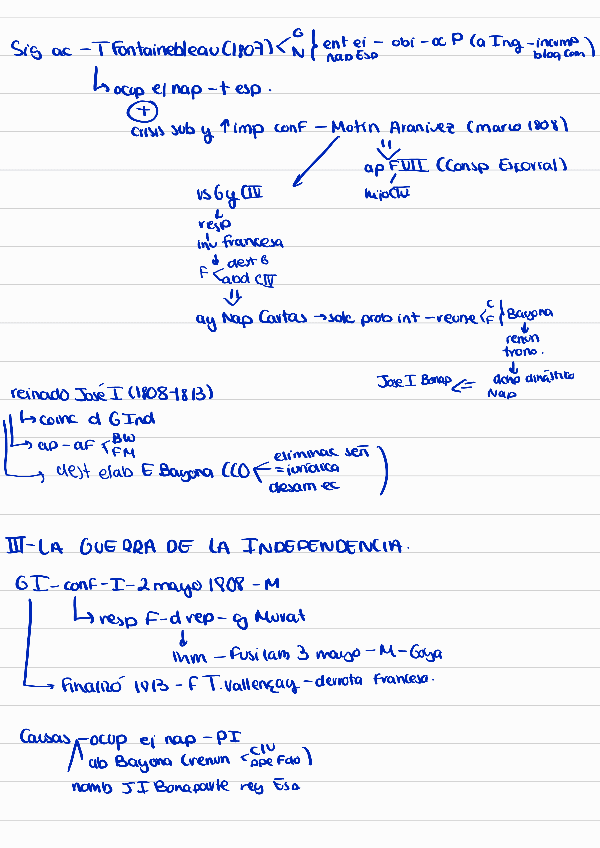 Sig ac - T Fontainebleau (1807) < G N } ent ej - obj - oc P (a Ing - incump
Nap Esp blog Com)
↳ ocup ej nap - t esp.
+
crisis sub y ↑ imp conf - Motín Aranjuez (marzo 1808)
ap FVII (Consp Escorial)
hijo CIV
vs G y CIV
resp
inv francesa
F < dest G
abd CIV
ay Nap Cartas → solc prob int - reune < C F } Bayona
renun
trono.
José I Bonap ⇐ dcho dinástico
Nap
reinado José I (1808-1813)
↳ coinc d G Ind
↳ ap - af < BW
FM
→ dest elab E Bayona (CO < eliminac señ
= jurídica
desam ec )
III - LA GUERRA DE LA INDEPENDENCIA.
GI - conf - I - 2 mayo 1808 - M
↳ resp F - d rep - g Murat
inm - Fusilam 3 mayo - M - Goya
→ Finalizó 1813 - F T. Vallençay - derrota francesa.
Causas - ocup ej nap - PI
ab Bayona (renun < CIV
ppe Fdo )
nomb J I Bonaparte rey Esp